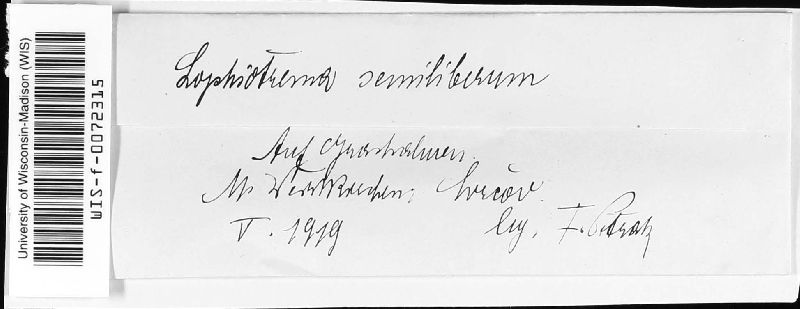 University of Wisconsin-Madison (WIS)
WIS-f-0072315
Lophiotrema semiliberum
Auf Grashalmen.
M. Weisskirchen,
V. 1919
leg. F. Petrak